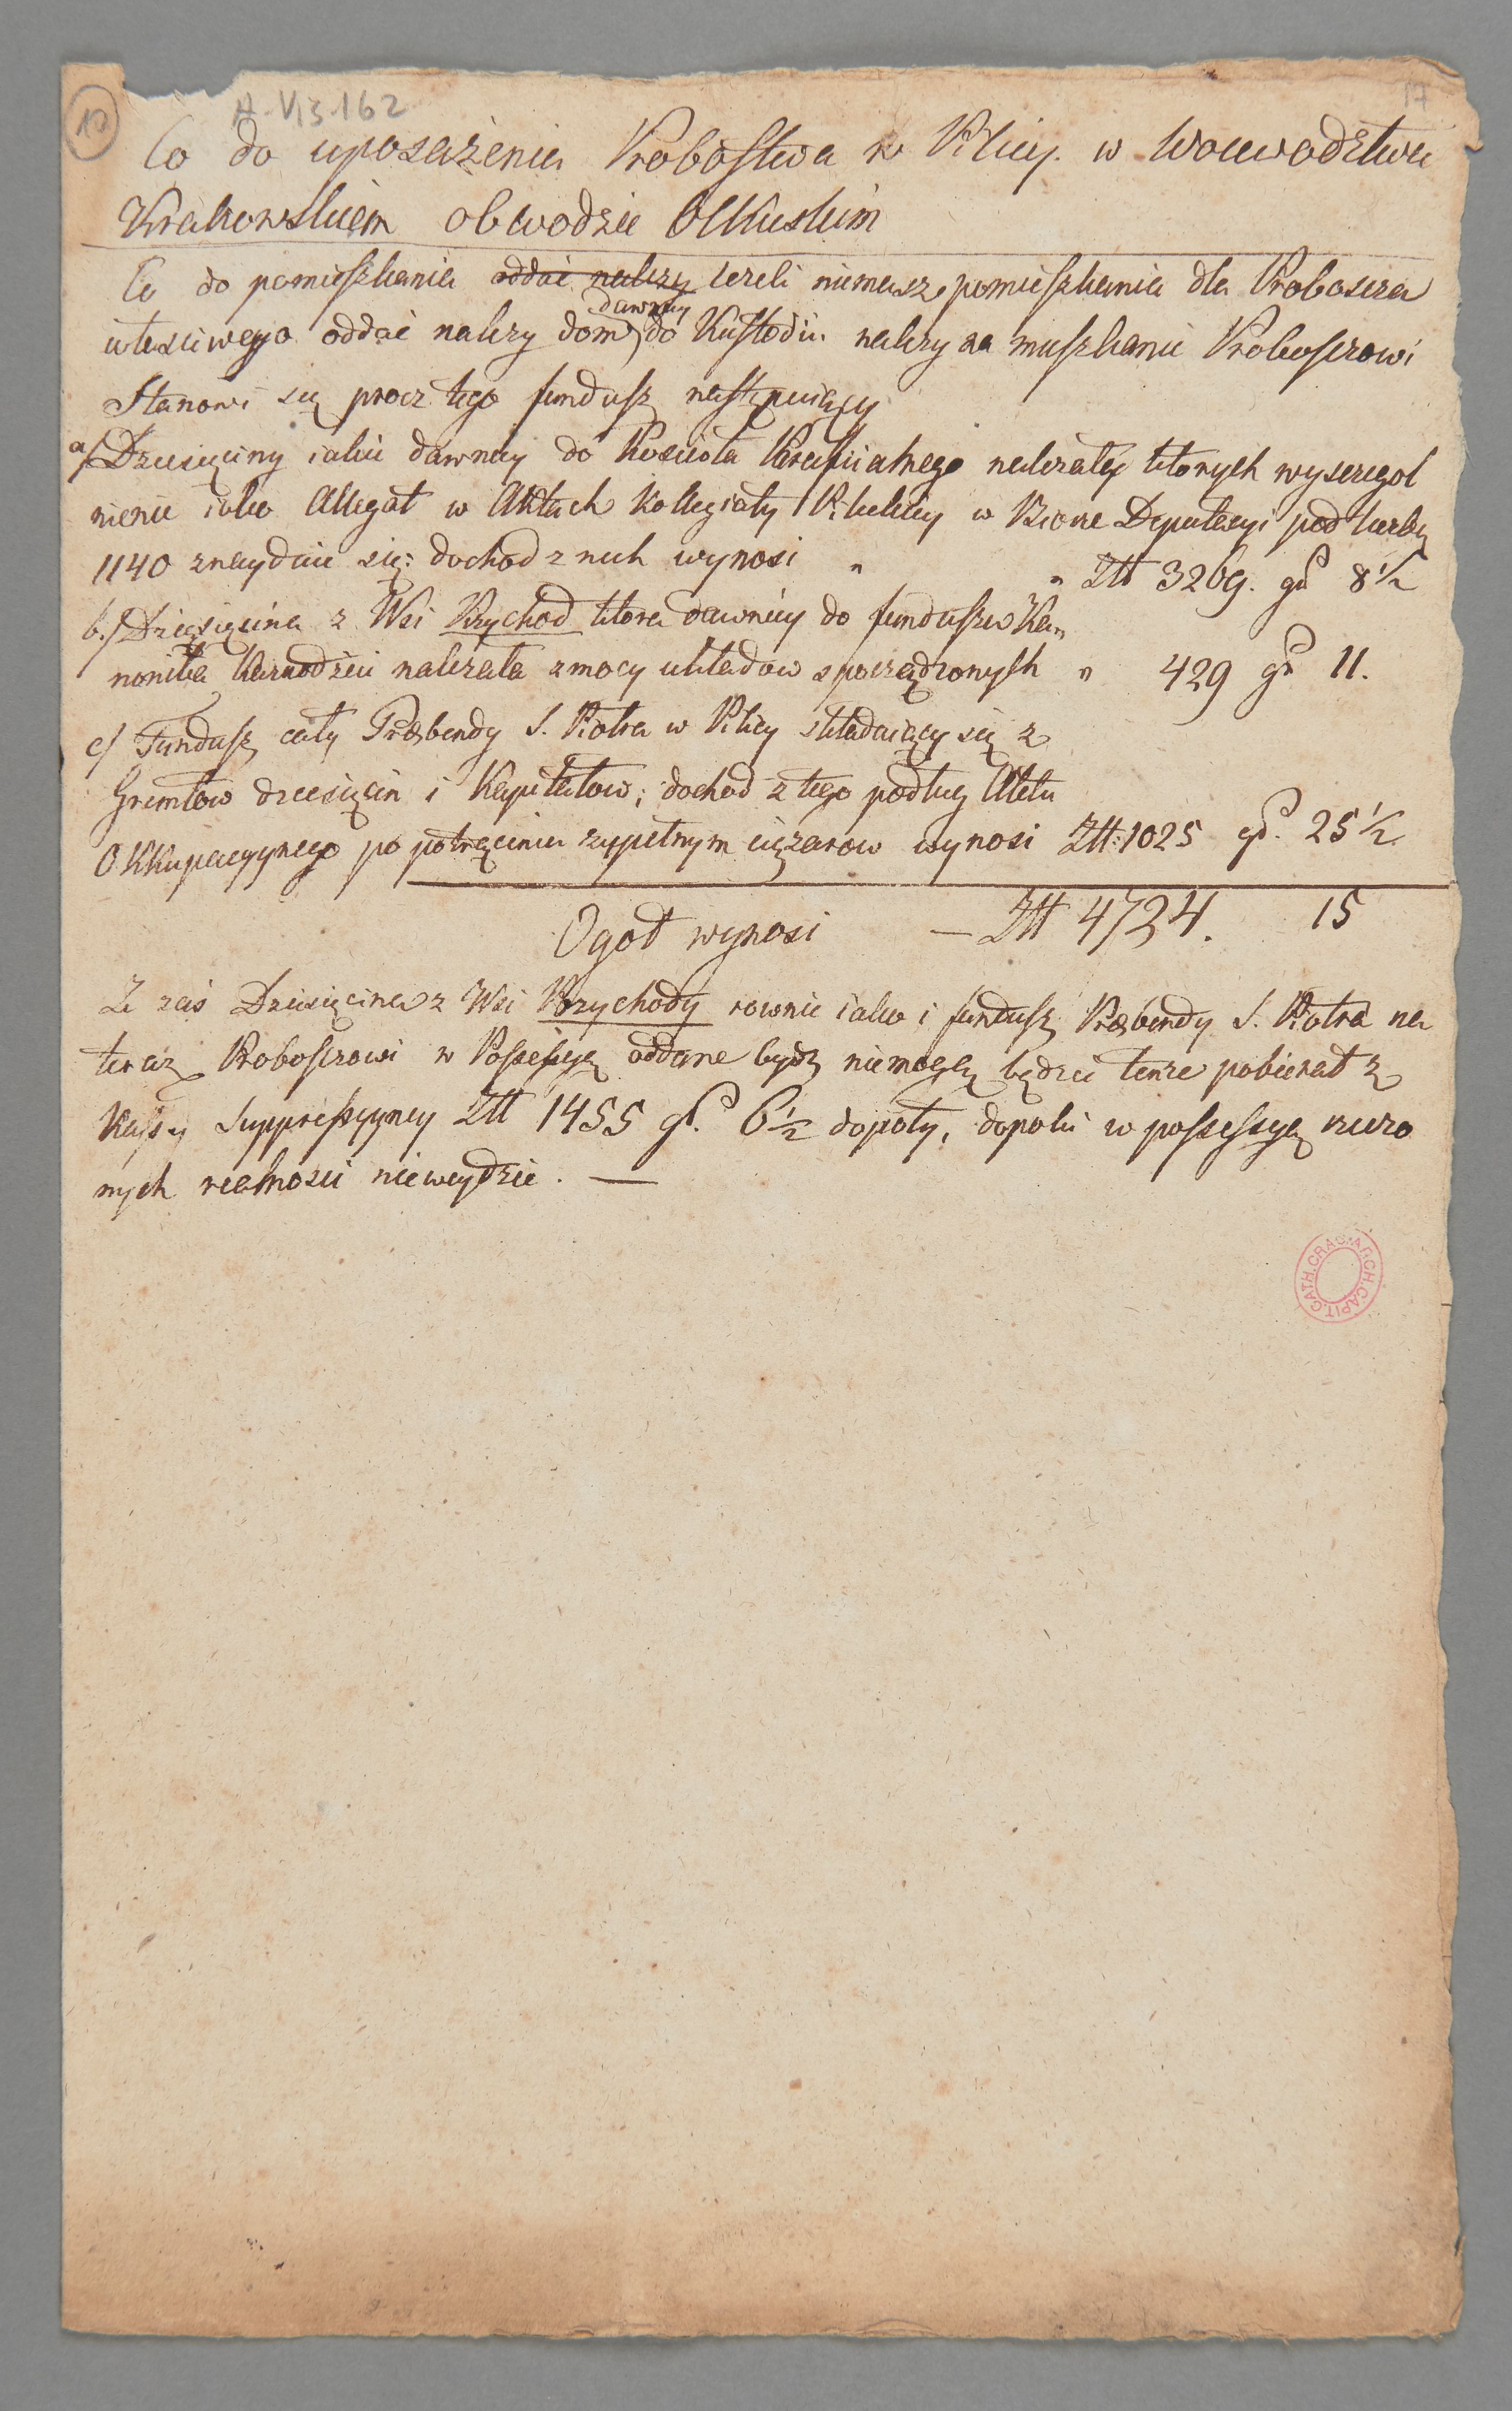 17
A-Vis-162
17
Co do uposażenia Probostwa w Pilicy w Woiewodztwie
Krakowskiem obwodzie Olkuskim
Co do pomieszkania oddać należy iezeli niemasz pomieszkania dla Proboszcza
własciwego oddać nalezy dom dawniey do Kustodii nalezy na mieszkanie Proboszczowi
Stanowi się procz tego fundusz następuiący
a/ Dziesięciny iakie dawniey do Kosciola Parafialnego nalezały ktorych wyszczegol
nienie iako Allegat w Aktach Kollegiaty Pilickiey w Biorze Deputacyi pod liczbą
1140 znayduie się: dochod z nich wynosi " " Złł 3269. gr 8½
b./ Dziesięcina z Wsi Przychod ktora dawniey do funduszu Ka„
nonika Kaznodziei nalezała z mocy układow sporządzonych " 429 gr 11.
c/ Fundusz cały Præbendy S. Piotra w Pilicy składaiący się z
Gruntow dziesięcin i Kapitałow; dochod z tego podług Aktu
Okkupacyynego po potrąceniu zupełnym cięzarow wynosi Złł: 1025 gr. 25½
Ogoł wynosi — Złł 4724. 15
Ze zaś Dziesięcina z Wsi Przychody rownie iako i fundusz Præbendy S. Piotra na
teraz Proboszczowi w Possessyą oddane bydz niemogą będzie tenze pobierał z
Kassy Suppressyyney Złł 1455 gr. 6½ dopoty, dopoki w possessyą rzeczo
nych realnosci nieweydzie. —
ARCH.CAPIT.CATH.CRAC.